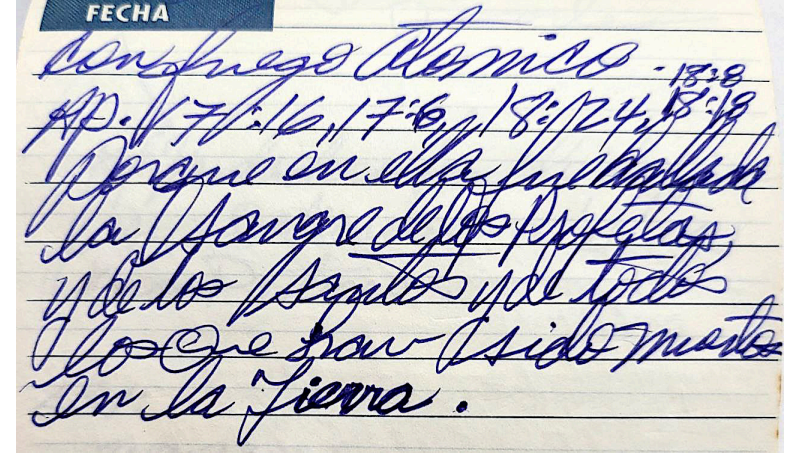 FECHA
con fuego atomico - 18:8
AP. 17:16, 17:6, 18:24, 18:18
Porque en ella fue hallada
la sangre de los Profetas,
y de los santos y de todos
los que han sido muertos
en la Tierra.